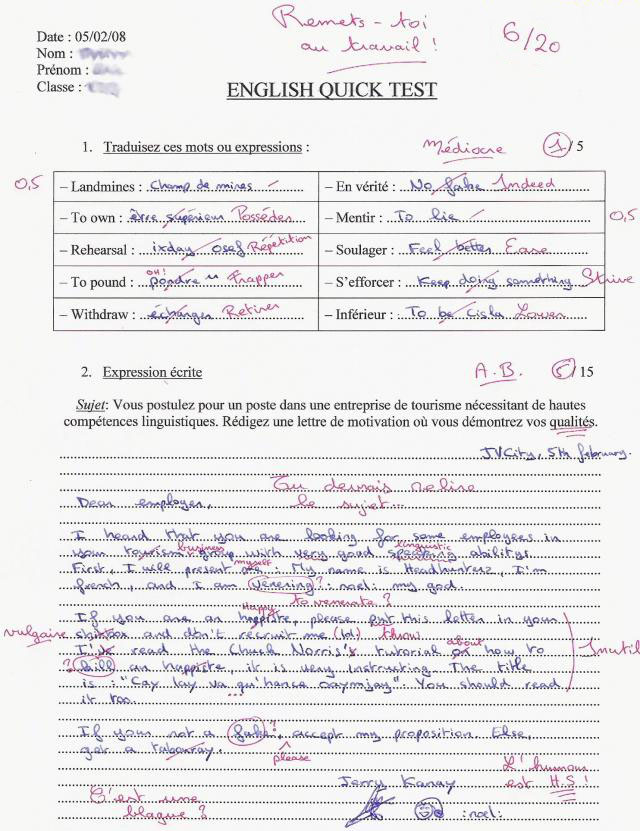 Date : 05/02/08
Remets-toi
au travail !
6/20
Nom :
Prénom :
Classe :
ENGLISH QUICK TEST
1. Traduisez ces mots ou expressions :
Médiocre 1/5
0,5 – Landmines : Champ de mines – En vérité : No fake Indeed
– To own : être supérieur Posséder – Mentir : To lie 0,5
– Rehearsal : ixday osef Répétition – Soulager : Feel better Ease
– To pound : OH! pondre Frapper – S'efforcer : Keep doing something Strive
– Withdraw : échanger Retirer – Inférieur : To be cisla Lower
2. Expression écrite
A.B. 5/15
Sujet: Vous postulez pour un poste dans une entreprise de tourisme nécessitant de hautes
compétences linguistiques. Rédigez une lettre de motivation où vous démontrez vos qualités.
JVCity, 5th february.
Tu devrais relire
Dear employer, le sujet...
I heard that you are looking for some employees in
business linguistic
your tourism group with very good speaking abilitys
myself
First, I will present me : My name is Headhunterz, I'm
french, and I am venering ? :noel: my god.
to venerate ?
Happy
If you are an happiste, please put this letter in your
vulgaire shitbox and don't recruit me (lol) throw
about
I've read the Chuck Norris's tutorial on how to Inutil
? kill an happiste, it is very instructing. The title
is : "Cay lay va qu'hance oaymjay". You should read
it too. ...
If your not a fake ?, accept my proposition. Else,
get a tabouray. please
Jerry Kanay
L'humour
est H.S !
C'est une
blague ?
:noel: